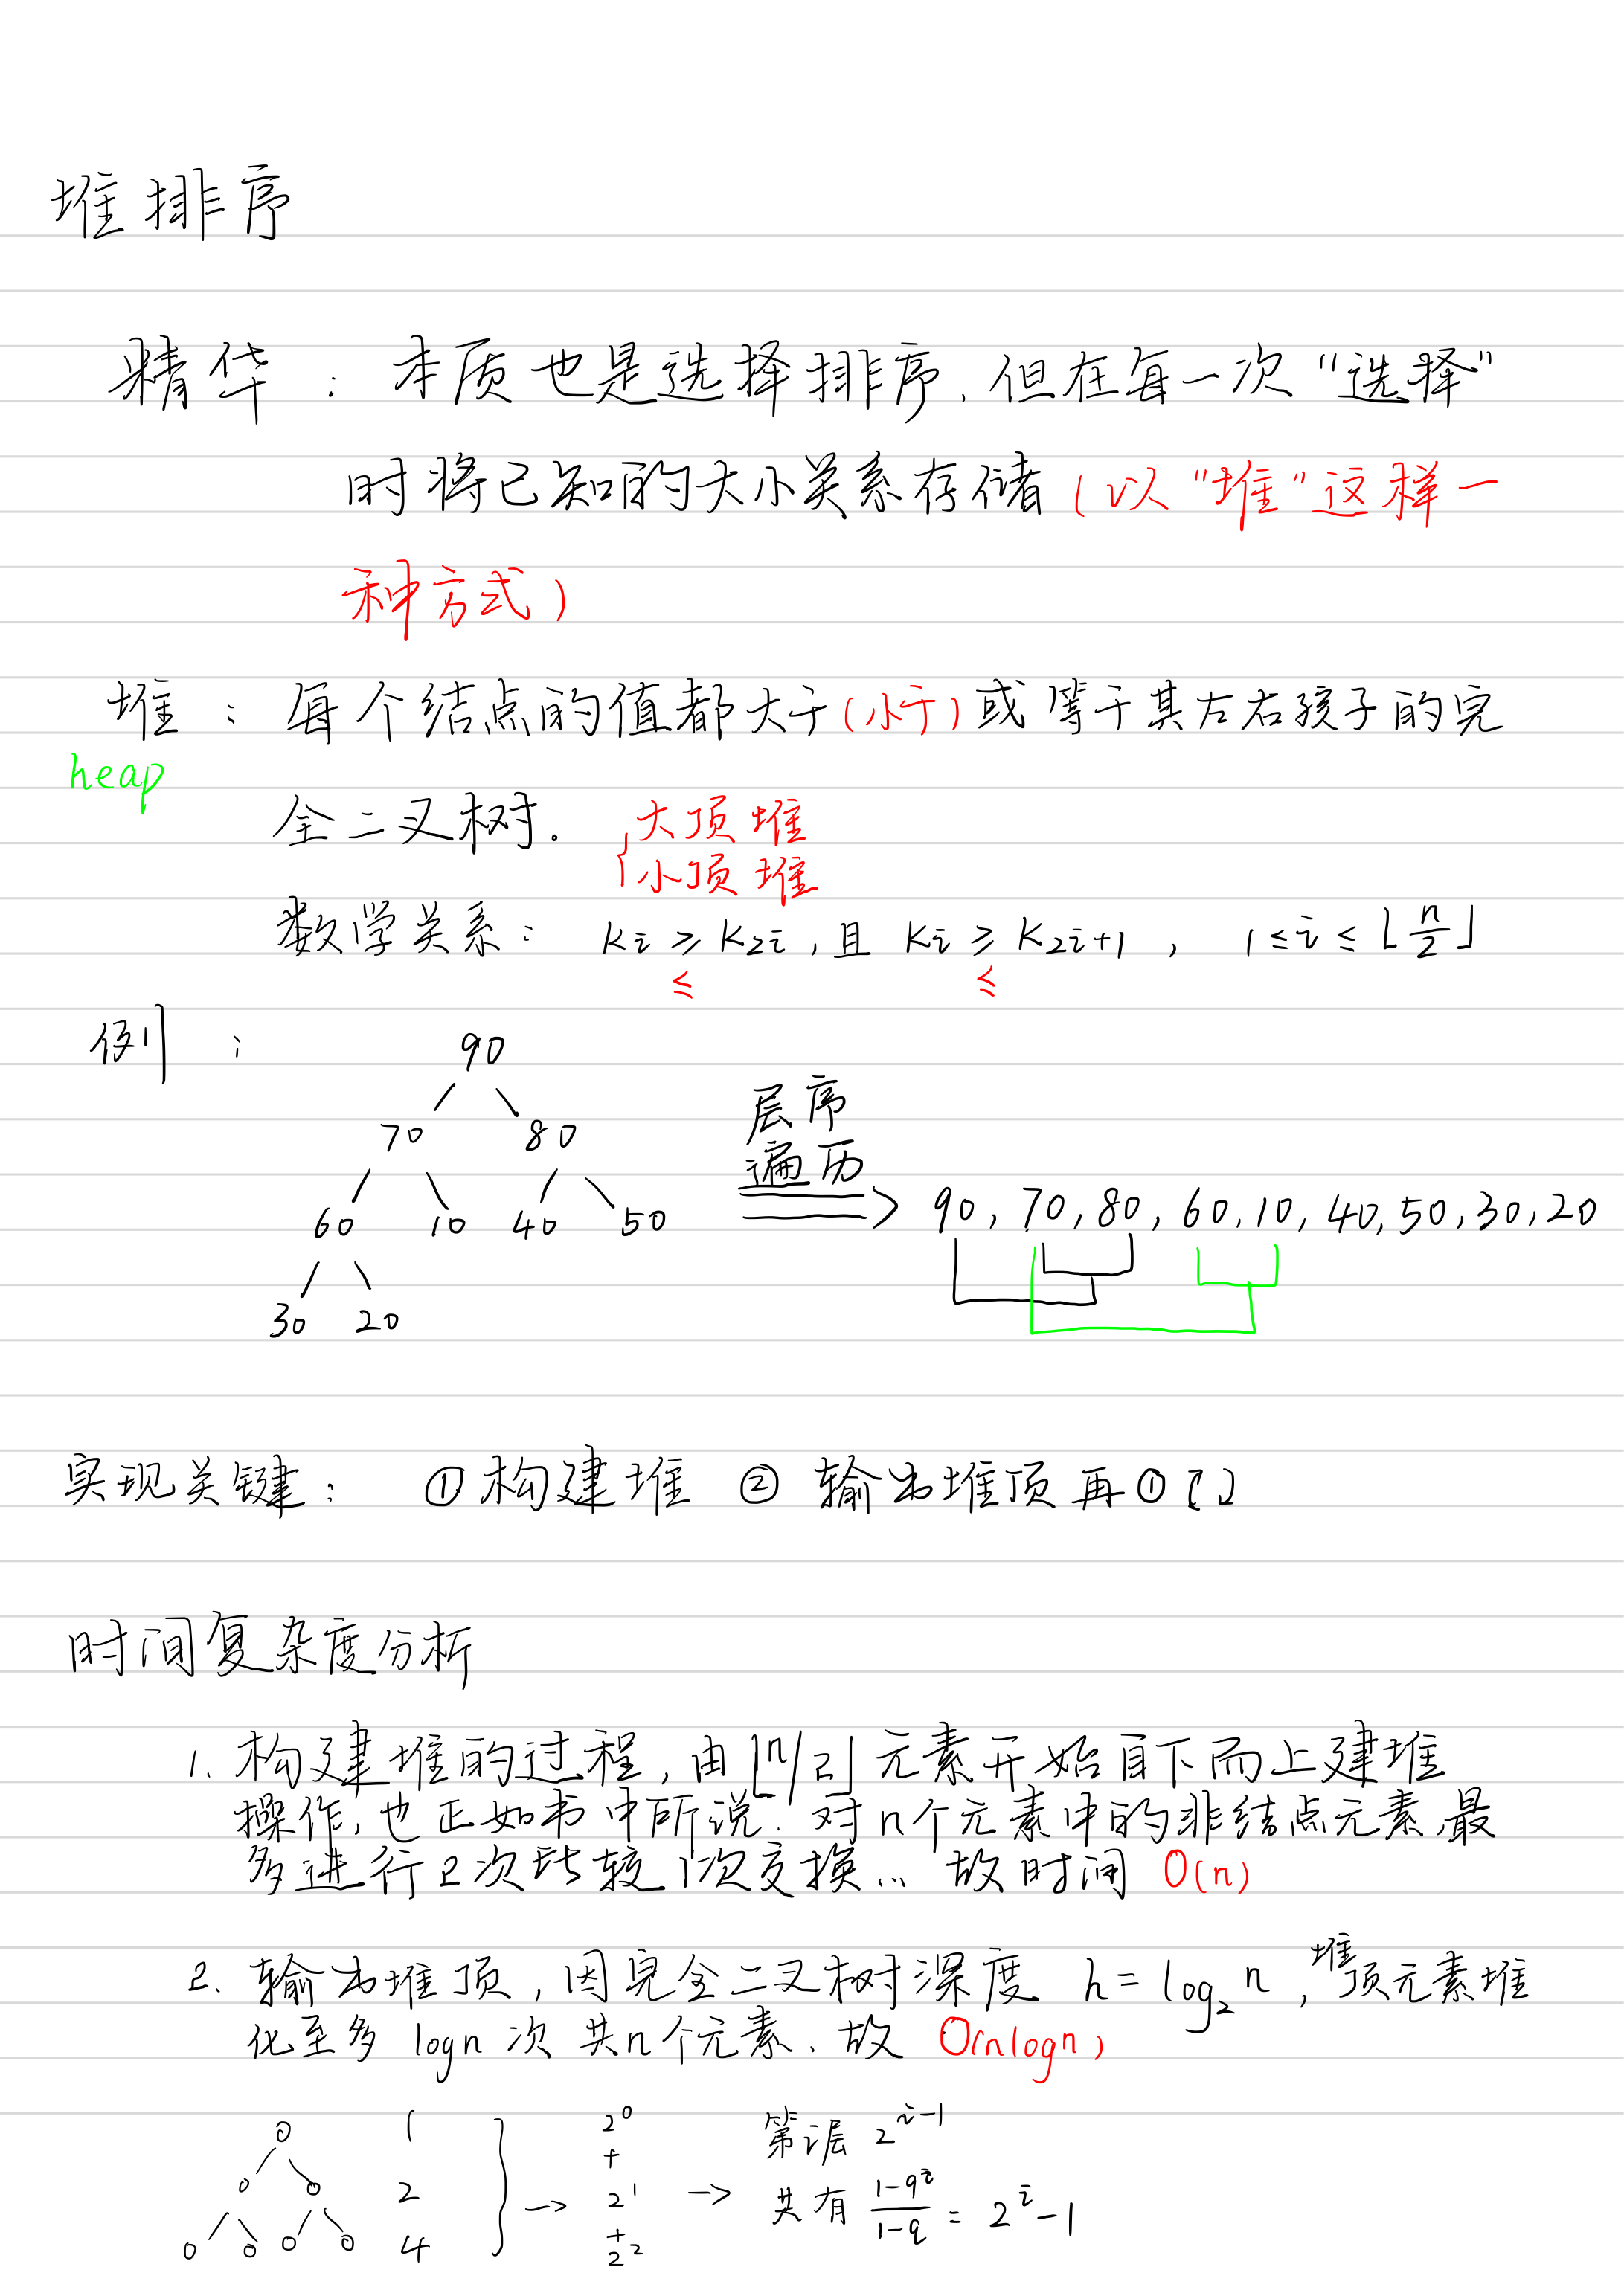 堆排序
精华：本质也是选择排序，但在每一次“选择”
时将已知的大小关系存储（以“堆”这样一
种方式）
堆：每个结点的值都大于（小于）或等于其左右孩子的完
heap
全二叉树。
大顶堆
小顶堆
数学关系： Ki ≥ K2i ，且 Ki ≥ K2i+1 ， 1 ≤ i ≤ ⌊n/2⌋
≤ ≤
例：
90
70 80
60 10 40 50
30 20
层序
遍历
90, 70, 80, 60, 10, 40, 50, 30, 20
实现关键： ① 构建堆 ② 输出堆顶再①
时间复杂度分析
1. 构建堆的过程，由⌊n/2⌋元素开始自下而上建堆
操作，也正如书中所说：对n个元素中的非结点元素，最
多进行2次比较1次交换… 故时间 O(n)
2. 输出堆顶，因完全二叉树深度 h = log₂n ，堆顶元素堆
化至多 logn 次 共n个元素、故 O(nlogn)
0 1
0 0 2
0 0 0 0 4
2^0
+
2^1
+
2^2
→ →
第i层 2^(i-1)
共有 (1-q^i)/(1-q) = 2^i - 1